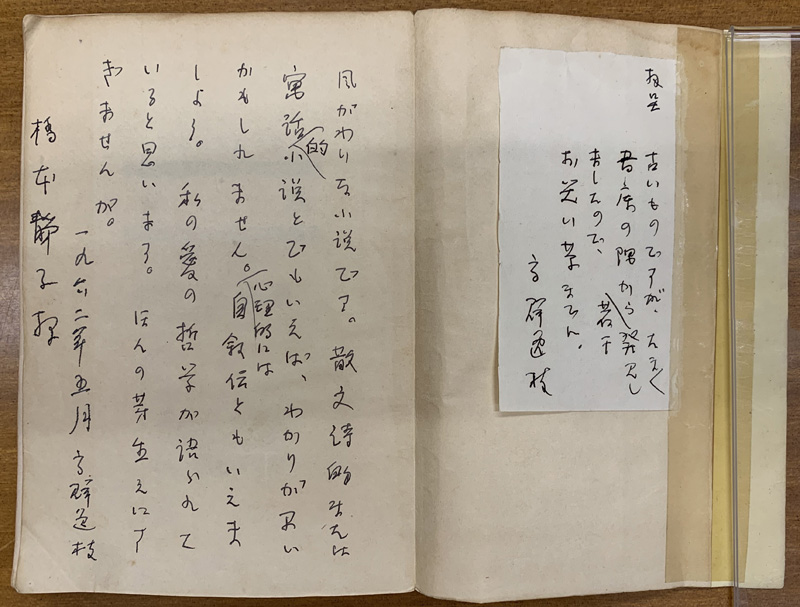 拝呈
古いものですが、たま〱
書庫の隅から若干発見し
ましたので、
お笑い草までに。
高群逸枝
風がわりな小説です。散文詩的または
寓話的小説とでもいえば、わかりが早い
かもしれません。心理的には自叙伝ともいえま
しょう。私の愛の哲学が語られて
いると思います。ほんの芽生えにす
ぎませんが。
一九六二年五月 高群逸枝
橋本静子様